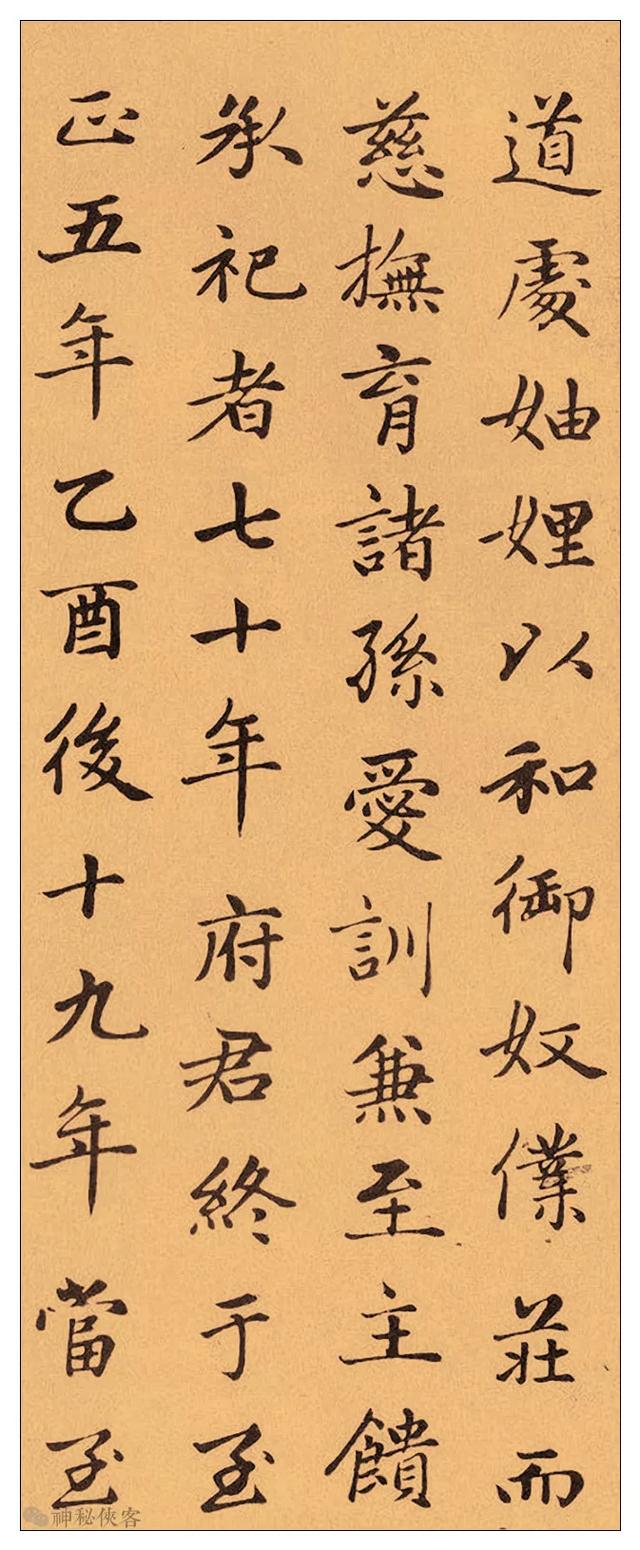 道處妯娌以和御奴僕莊而
慈撫育諸孫愛訓兼至主饋
承祀者七十年府君終于至
正五年乙酉後十九年當至
神秘俠客